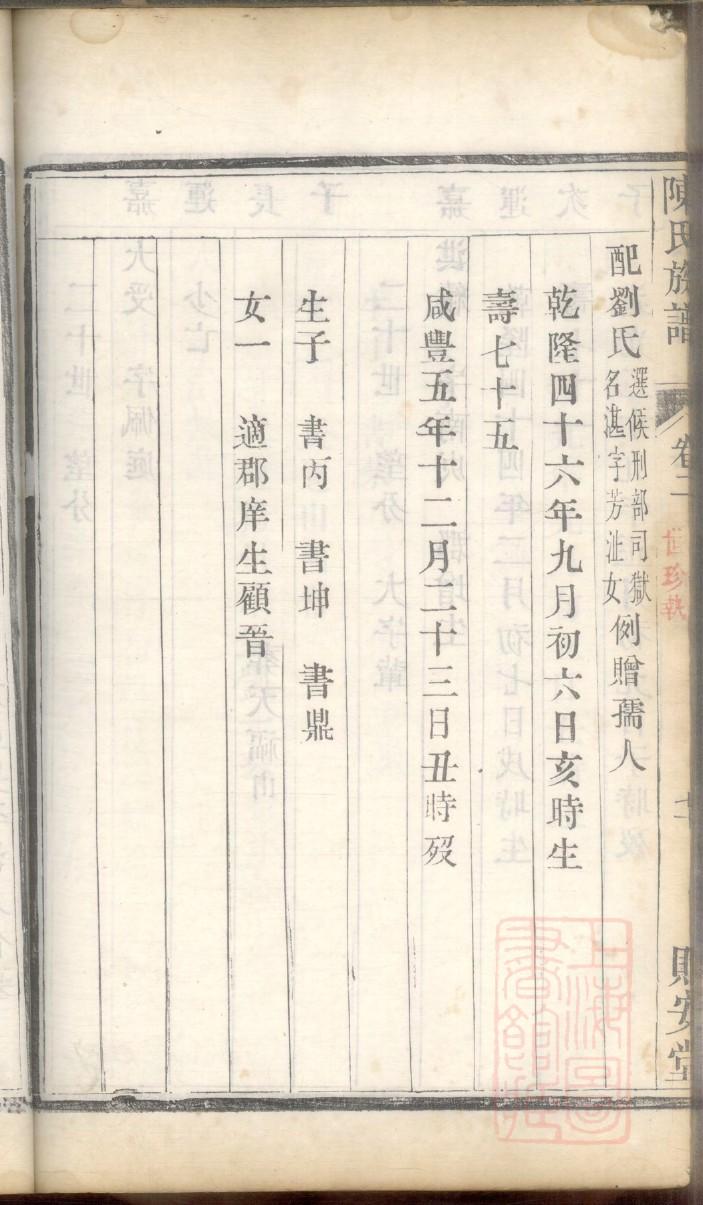 陳氏族譜 卷二 世珍執
配劉氏 選候刑部司獄名湛字芳沚女 例贈孺人
乾隆四十六年九月初六日亥時生
壽七十五
咸豐五年十二月二十三日丑時歿
生子 書丙 書坤 書鼎
女一 適郡庠生顧晉
上海圖書館藏